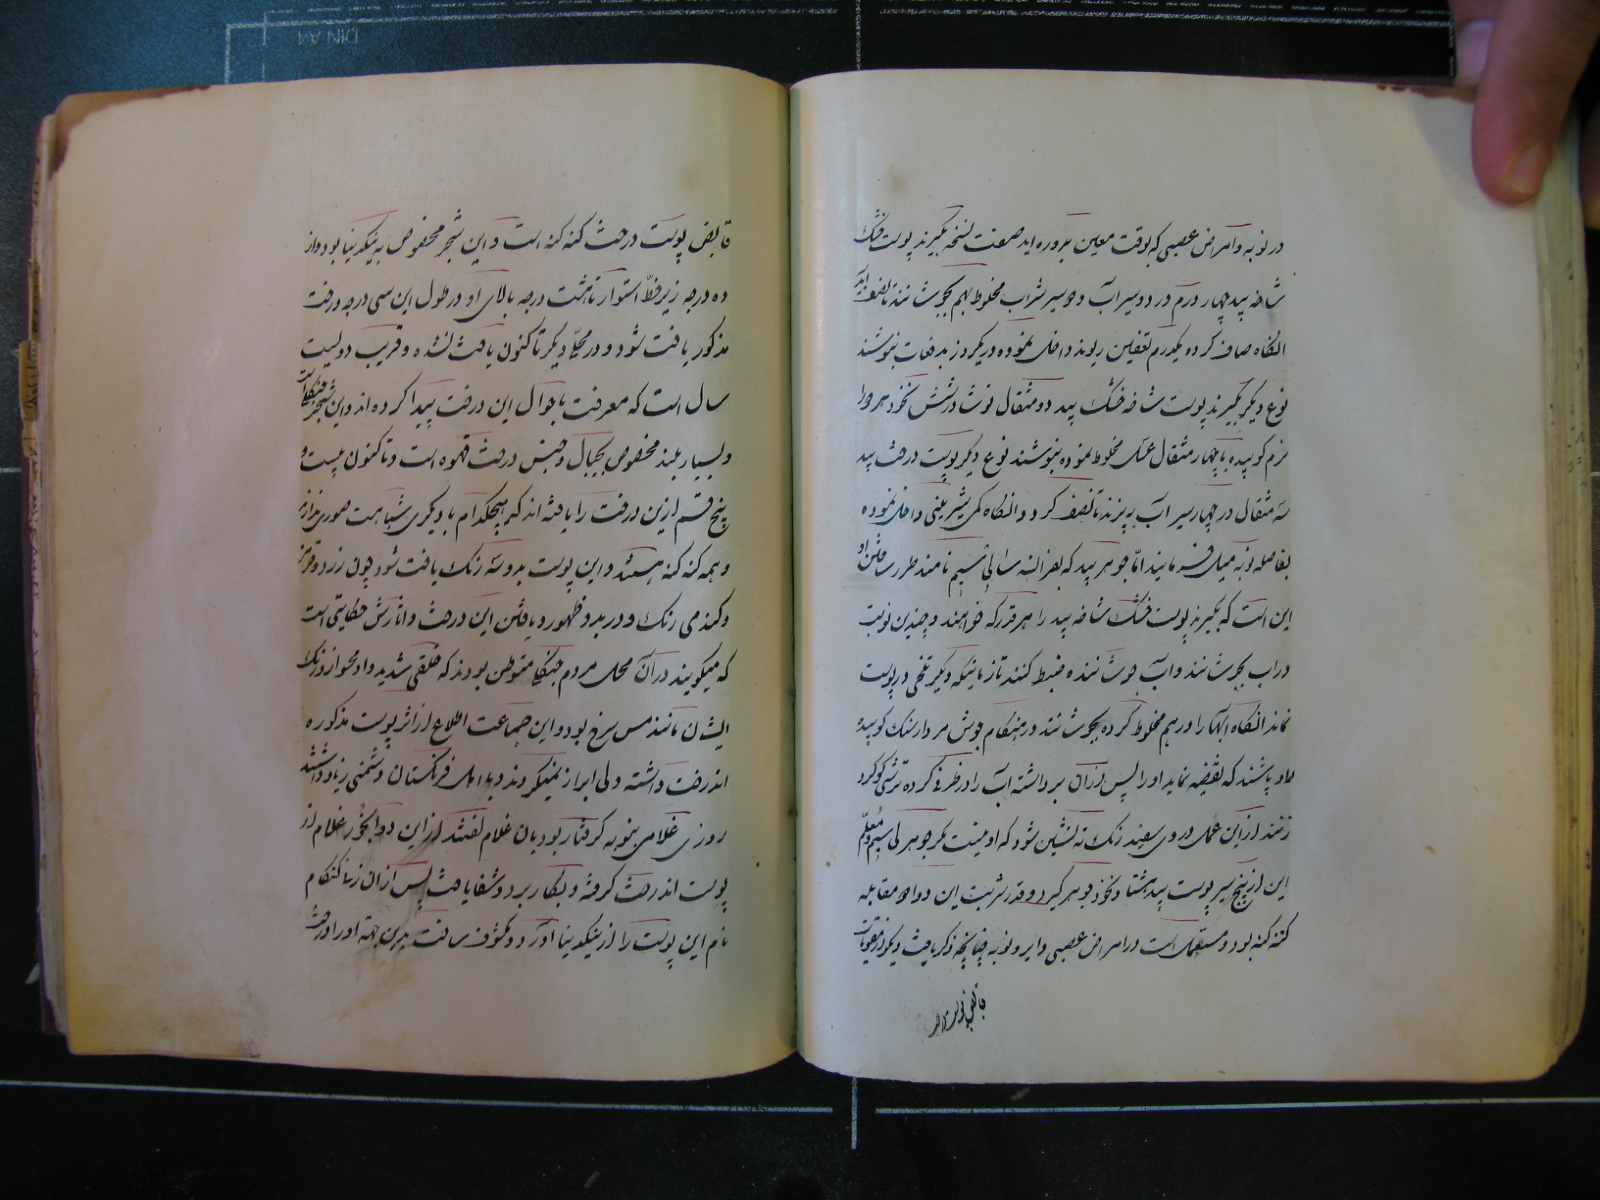 در نوبه و امراض عصبی که بوقت معین بدوره اید صنعت نسخه بگیرند پوست خشک
شاخه بید چهار درم در دو سیر آب و دو سیر شراب مخلوط بهم بجوشانند تا نصف اید
انگاه صاف کرده یکدرم تعفین ریوند داخل نموده در یکروز بدفعات بنوشند
نوع دیگر بگیرند پوست شاخه خشک بید دو مثقال نوشادر شش نخود هر دو را
نرم کوبیده با چهار مثقال عسل مخلوط نموده بنوشند نوع دیگر پوست درخت بید
سه مثقال در چهار سیر آب به پزند تا نصف کردد انگاه کمی شیرینی داخل نموده
بفاصله نوبه میل فرمایند امّا جوهر بید که بفرانسه سالی سیم نامند طرز ساختن او
این است که بگیرند پوست خشک شاخه بید را هر قدر که خواهند و چندین نوبت
در اب بجوشانند و آب جوشانده ضبط کنند تا زمانیکه دیگر تلخی در پوست
نماند انگاه ابها را در هم مخلوط کرده بجوشانند در هنگام جوش مردارسنگ کوبیده
باو پاشند که تصفیه نماید او را پس از آن برداشته آب را در ظرفی کرده ترشی کوکرد
زنند از این عمل دردی سفید رنگ ته نشین شود که او نیست مگر جوهر لی سیم و معلّم
این از پنج سیر پوست بید هشتاد نخود جوهر گیرد و قدر شربت این دوا مقابله
کنه کنه بود و مستعمل است در امراض عصبی دایر و نوبه چنانچه ذکر یافت دیگر از مقویات
قابض پوست درخت
قابض پوست درخت کنه کنه است و این شجر مخصوص به ینکدینا بود و از
ده درجه زیر خطّ استوار تا هشت درجه بالای او در طول این سی درجه درخت
مذکور یافت شود و در محلّ دیگر تا کنون یافت نشده و قریب دویست
سال است که معرفت باحوال این درخت پیدا کرده اند و این شجر جنگلی است
و بسیار بلند مخصوص بجبال و جنس درخت قهوه است و تا کنون بیست و
پنج قسم ازین درخت را یافته اند که هیچکدام با دیگری شباهت صوری ندارند
و همه کنه کنه هستند و این پوست بدو سه رنگ یافت شود چون زرد و قرمز
و کندمی رنگ و در بدو ظهور و یافتن این درخت و اثارش حکایتی است
که میگویند در آن محل مردم جنگلی متوطن بودند که خلقی شدید داد محوا ز و رنگ
ایشان مانند مس سرخ بود و این جماعت اطلاع از اثر پوست مذکوره
اندرخت داشته ولی ابراز نمیکردند و با اهل فرنگستان دشمنی زیاد داشتند
روزی غلامی بنوبه گرفتار بود بان غلام گفتند از این دوا بخور غلام از
پوست اندرخت گرفته و بکار برد و شفا یافت پس از آن زنا کنکام
نام این پوست را از ینکدینا آورد و مکشوف ساخت بدین جهة او را درخت